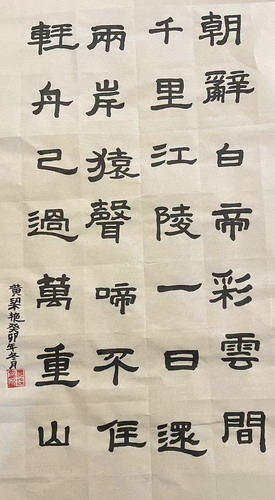 朝辭白帝彩雲間
千里江陵一日還
兩岸猿聲啼不住
輕舟己過萬重山
黄艳癸卯年冬月